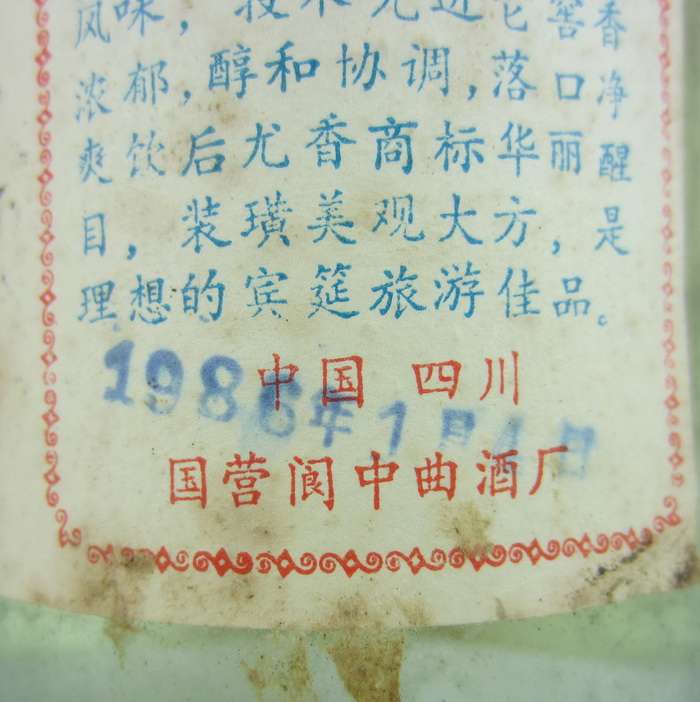 风味，技术先进它窖香
浓郁，醇和协调，落口净
爽饮后尤香商标华丽醒
目，装璜美观大方，是
理想的宾筵旅游佳品。
中国 四川
1986年1月1日
国营阆中曲酒厂